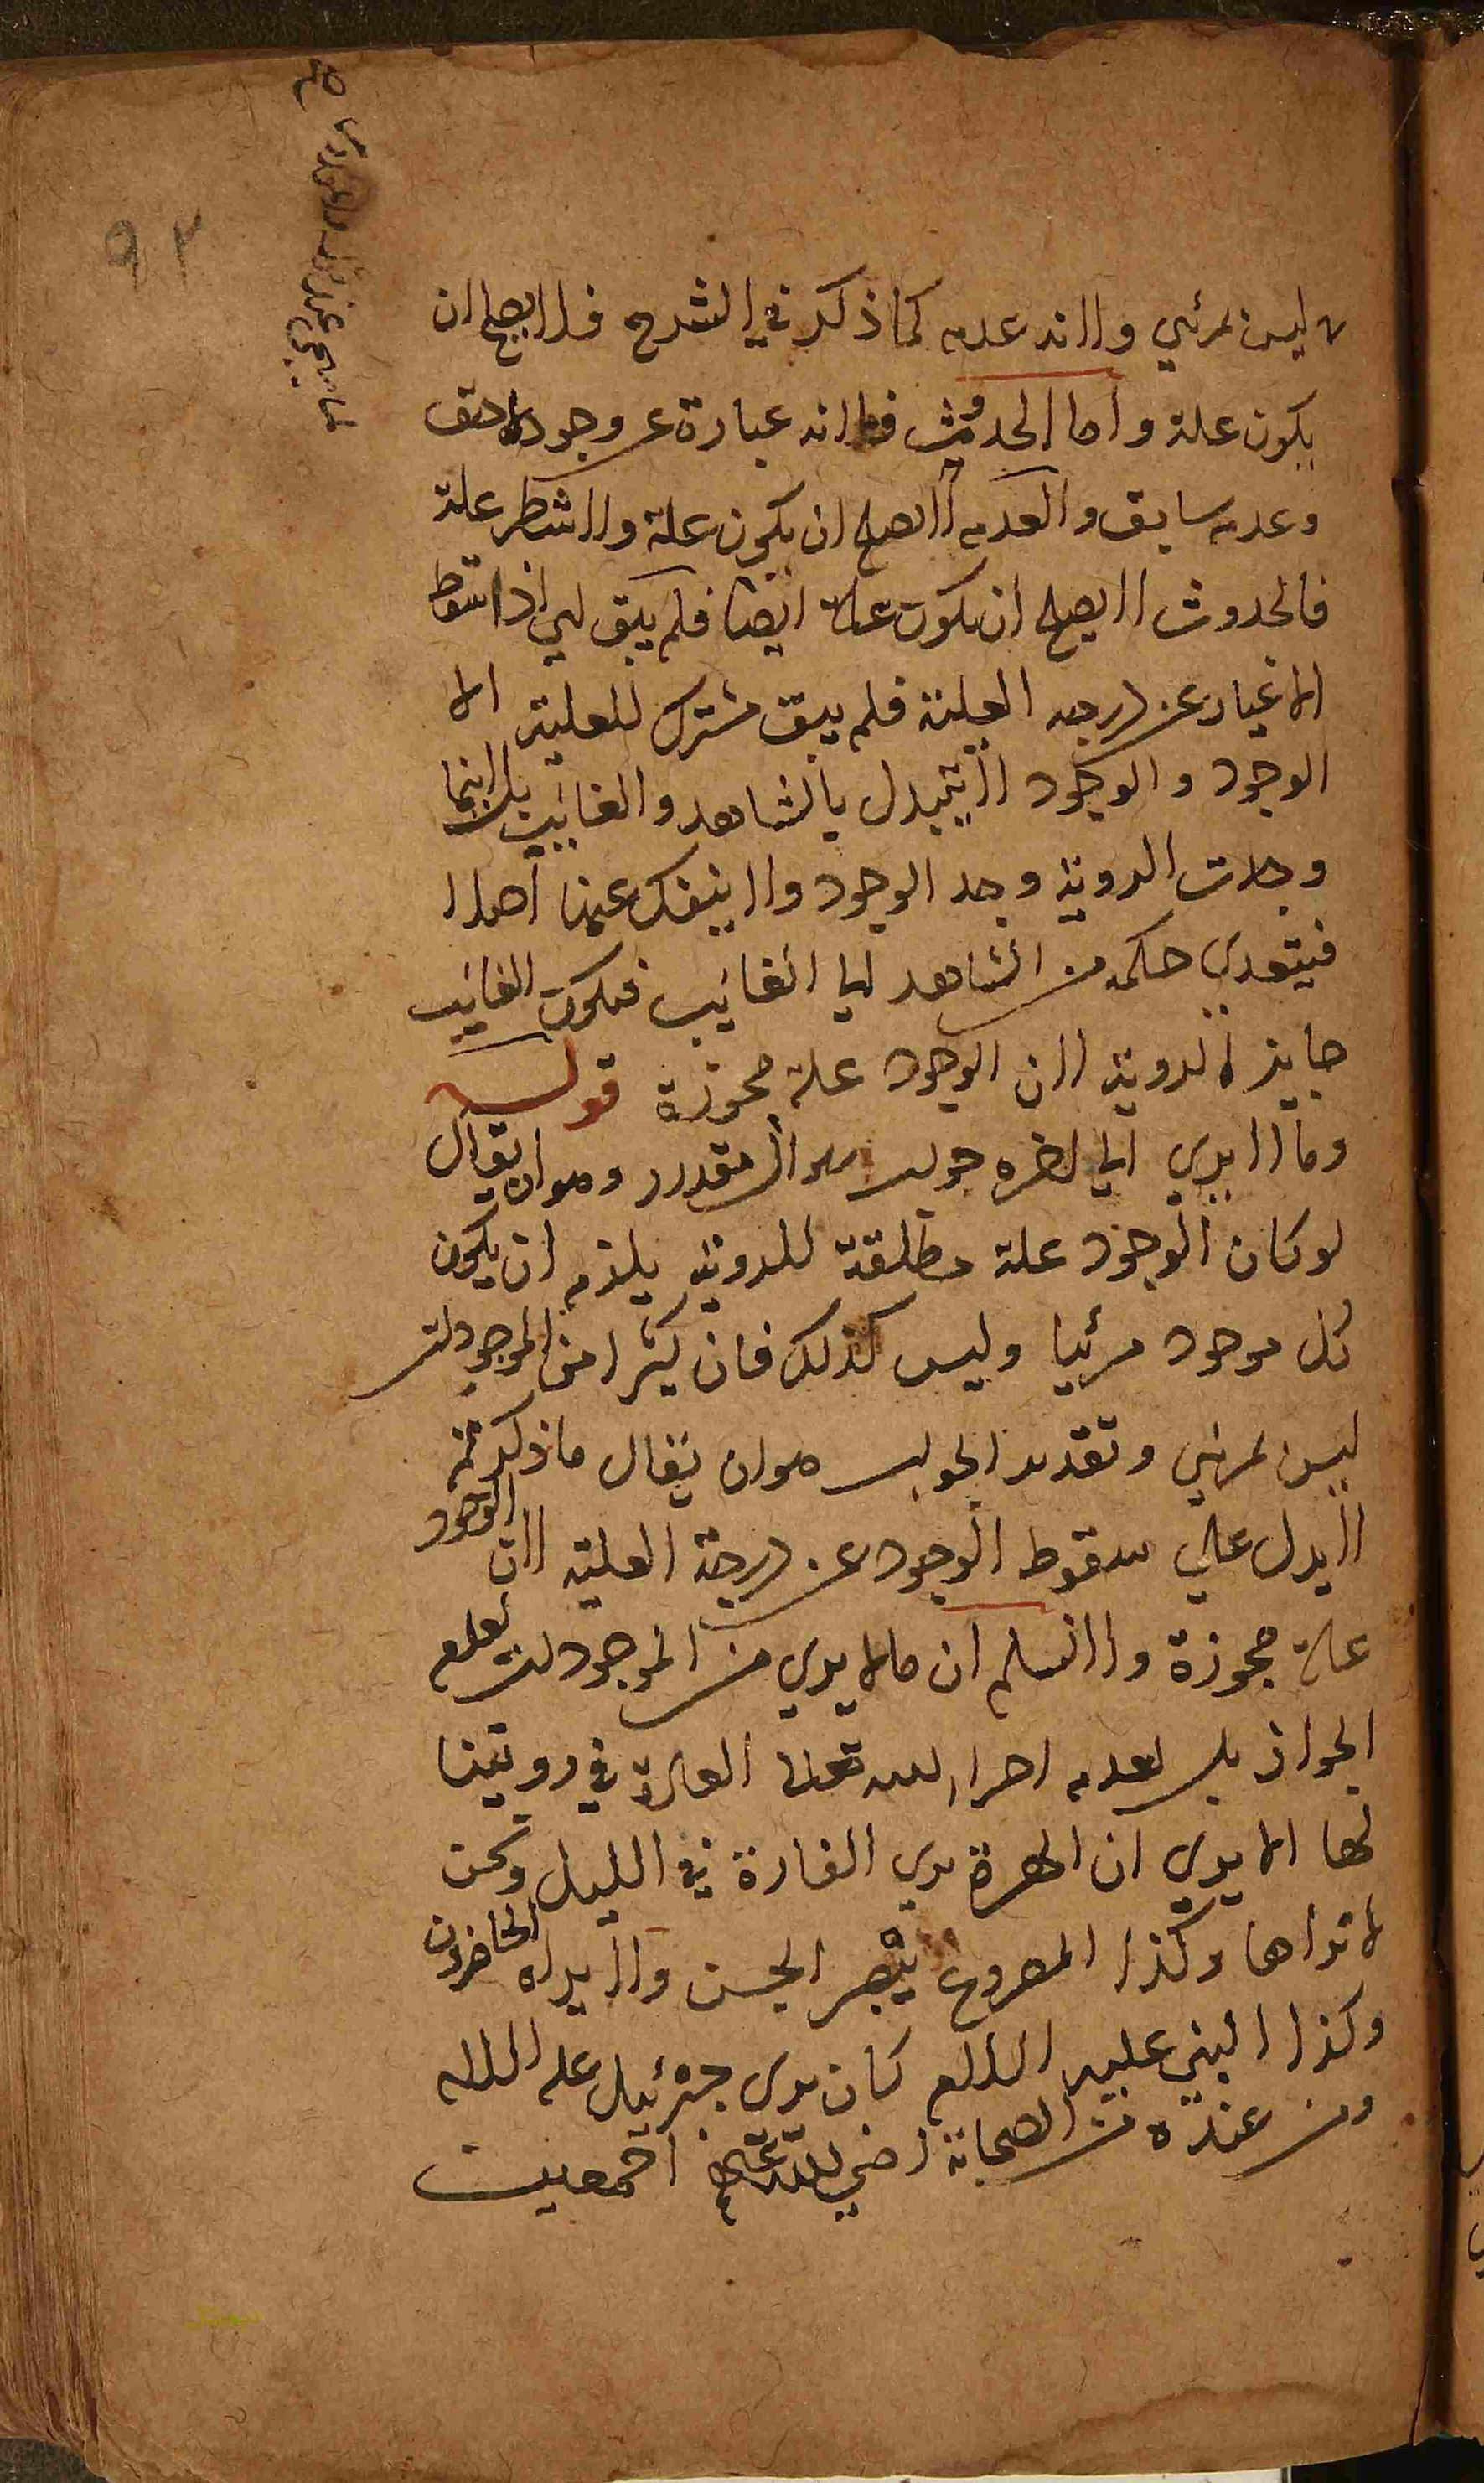 ٩٣
لا ليس بمرئي ولانه عدم كما ذكر في الشرح فلا يصح ان
يكون علة واما الحدوث فلانه عبارة عن وجود لاحق
وعدم سابق والعدم لا يصح ان يكون علة ولا شطر علة
فالحدوث لا يصح ان يكون علة ايضا فلم يبق اي اذا سقط
الاغيار عن درجه العلية فلم يبق مشترك للعلية الا
الوجود والوجود لا يتبدل بالشاهد والغايب بل اينما
وجدت الروية وجد الوجود ولا ينفك عنها اصلا
فيتعدي حكمه من الشاهد الي الغائب فيكون الغائب
جايز الروية لان الوجود علة مجوزة قوله
وما لا يري الي اخره جواب سوال مقدر وهو ان يقال
لو كان الوجود علة مطلقة للروية يلزم ان يكون
كل موجود مرئيا وليس كذلك فان كثيرا من الموجودات
ليس بمرئي وتقدير الجواب هو ان يقال ما ذكرتم
لا يدل علي سقوط الوجود عن درجة العلية لان الوجود
علة مجوزة ولا نسلم ان ما لا يري من الموجودات لعدم
الجواز بل لعدم اجراء الله تعالى العادة في رويتنا
لها الا يري ان الهرة يري الفارة في الليل ونحن
لا نراها وكذا المصروع يبصر الجن ولا يراه الحاضرون
وكذا النبي عليه السلام كان يري جبرئيل عليه السلام
ومن عنده من الصحابة رضي الله عنهم اجمعين